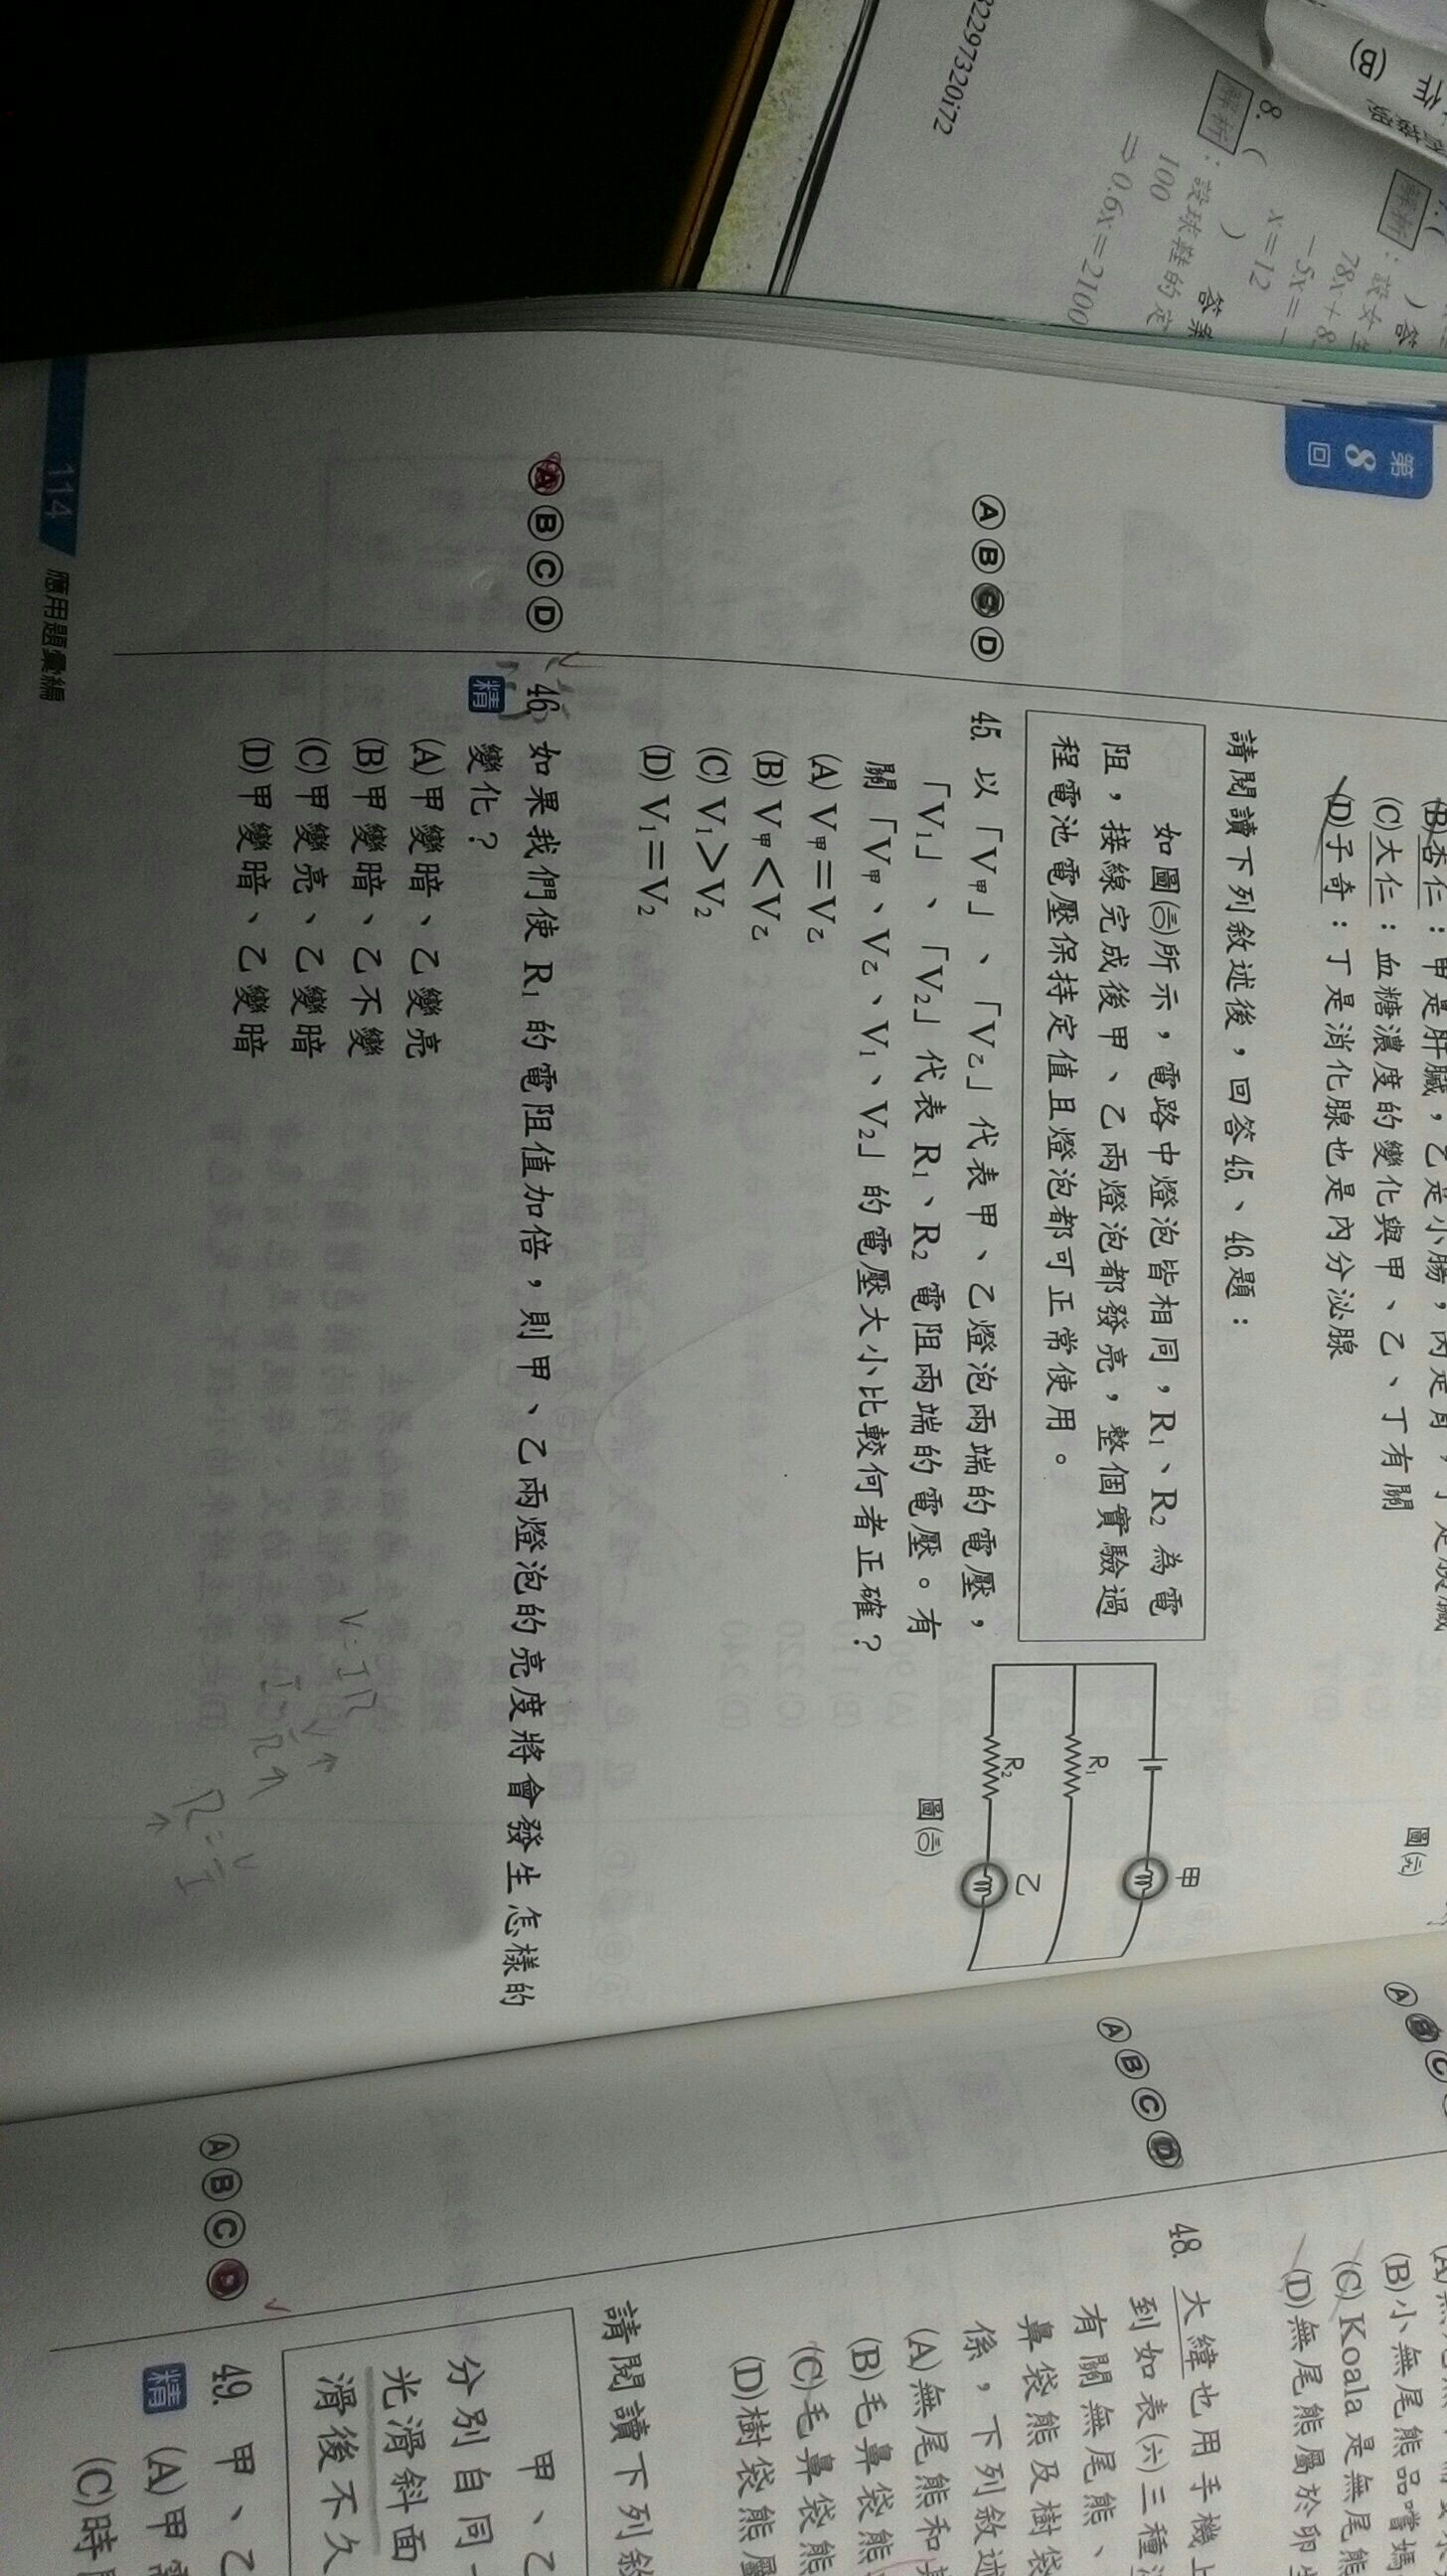 第8回
(B)杏仁：甲是肝臟，乙是小腸，丙是胃，丁是胰臟
(C)大仁：血糖濃度的變化與甲、乙、丁有關
(D)子奇：丁是消化腺也是內分泌腺
請閱讀下列敘述後，回答45.、46.題：
如圖(三)所示，電路中燈泡皆相同，R₁、R₂為電
阻，接線完成後甲、乙兩燈泡都發亮，整個實驗過
程電池電壓保持定值且燈泡都可正常使用。
甲
R₁
R₂
乙
Ⓐ Ⓑ Ⓒ Ⓓ
45. 以「V甲」、「V乙」代表甲、乙燈泡兩端的電壓，
「V₁」、「V₂」代表 R₁、R₂ 電阻兩端的電壓。有
關「V甲、V乙、V₁、V₂」的電壓大小比較何者正確？
(A) V甲＝V乙
(B) V甲＜V乙
(C) V₁＞V₂
(D) V₁＝V₂
Ⓐ Ⓑ Ⓒ Ⓓ
46. 如果我們使 R₁ 的電阻值加倍，則甲、乙兩燈泡的亮度將會發生怎樣的
精 變化？
(A)甲變暗、乙變亮
(B)甲變暗、乙不變
(C)甲變亮、乙變暗
(D)甲變暗、乙變暗
114 應用題彙編
8. ( ) 答案
解析：設球鞋的定
100
⇒0.6x＝2100
3229732017​2
x＝12
－5x＝－
78x＋8
解析：設女生
Ⓐ Ⓑ Ⓒ Ⓓ
(B)小無尾熊品嚐媽
(C)Koala 是無尾熊
(D)無尾熊屬於卵生
48. 大緯也用手機上
到如表(六)三種
有關無尾熊、
鼻袋熊及樹袋
係，下列敘述
(A)無尾熊和
(B)毛鼻袋熊
(C)毛鼻袋熊
(D)樹袋熊屬
請閱讀下列敘
甲、乙
分別自同一
光滑斜面
滑後不久
Ⓐ Ⓑ Ⓒ Ⓓ
49. 甲、乙
精 (A)甲
(C)時